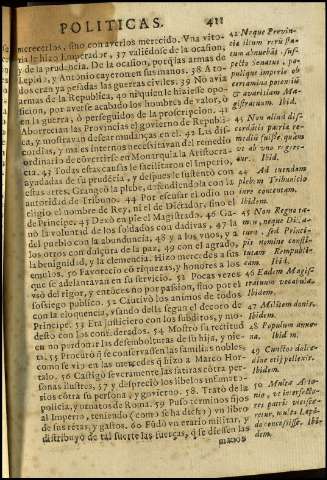 POLITICAS. 411
merecerlas, sino con averlos merecido. Vna vito-
ria le hizo Emperador, 37 valiédose de la ocasion,
y de la prudencia. De la ocasion, porq̃ las armas de
Lepido, y Antonio cayeron en sus manos. 38 A to-
dos eran ya pesadas las guerras civiles. 39 No avia
armas de la Republica, 40 ni quien le hiziesse opo-
sicion, por averse acabado los hombres de valor, ò
en la guerra, ò perseguidos de la proscripcion. 41
Aborrecian las Provincias el govierno de Republi-
ca, y mostravan desear mudanças en el. 42 Las dis-
cordias, y males internos necessitavan del remedio
ordinario de covertirse en Monarquia la Aristocra-
cia. 43 Todas estas causas le facilitaron el Imperio,
ayudadas de su prudécia, y despues le sustentò con
estas artes. Grangeò la plebe, defendiendola con la
autoridad de Tribuno. 44 Por escusar el odio no
eligio el nombre de Rey, ni el de Dictador, sino el
de Principe. 45 Dexò en pie el Magistrado. 46 Ga-
nò la voluntad de los soldados con dadivas, 47 la
del pueblo con la abundancia, 48 y a los vnos, y a
los otros con la dulçura de la paz. 49 con el agrado,
la benignidad, y la clemencia. Hizo mercedes a sus
emulos. 50 Favoreciò cō riquezas, y honores a los
que se adelantavan en su servicio. 51 Pocas vezes
vsò del rigor, y entōces no por passion, sino por el
sossiego publico. 52 Cautivò los animos de todos
con la eloquencia, vsando della segun el decoro de
Principe. 53 Era justiciero con los subditos, y mo-
desto con los confederados. 54 Mostrò su rectitud
en no perdonar las desembolturas de su hija, y nie-
ta. 55 Procurò q̃ se conservassen las familias nobles,
como se vio en las mercedes q̃ hizo a Marco Hor-
talo. 56 Castigò severamente las satiras cōtra per-
sonas ilustres, 57 y despreciò los libelos infamato-
rios cōtra su persona, y govierno. 58 Tratò de la
policia, y ornatos de Roma. 59 Puso terminos fijos
al Imperio, teniendo (como se ha dicho) vn libro
de sus rétas, y gastos. 60 Fūdò vn erario militar, y
distribuyò de tal suerte las fuerças, q̃ se diessen las
manos
42 Neque Provin-
cia illum rerū sta-
tum abnuebāt, sus-
pecto Senatus, po-
pulique imperio ob
certamina potentiū
& avaritiam Ma-
gistratuum. Ibid.
43 Non aliud dis-
cordātis patriæ re-
mediū fuisse, quàm
vt ab vno regere-
tur. Ibid.
44 Ad tuendam
plebem Tribunicio
iure contentum.
Ibidem.
45 Non Regno ta-
men, neque Dicta-
tura, sed Princi-
pis nomine consti-
tutam Rempublic-
cam. Ibid.
46 Eadem Magis-
tratuum vocabula.
Ibidem.
47 Militem donis.
Ibidem.
48 Populum anno-
na. Ibid.
49 Cunctos dulce-
dine otij pellexit.
Ibidem.
50 Multa Anto-
nio, vt interfecto-
res patris vlcisce-
retur, multa Lepi-
do concessisse. Ibi-
dem.